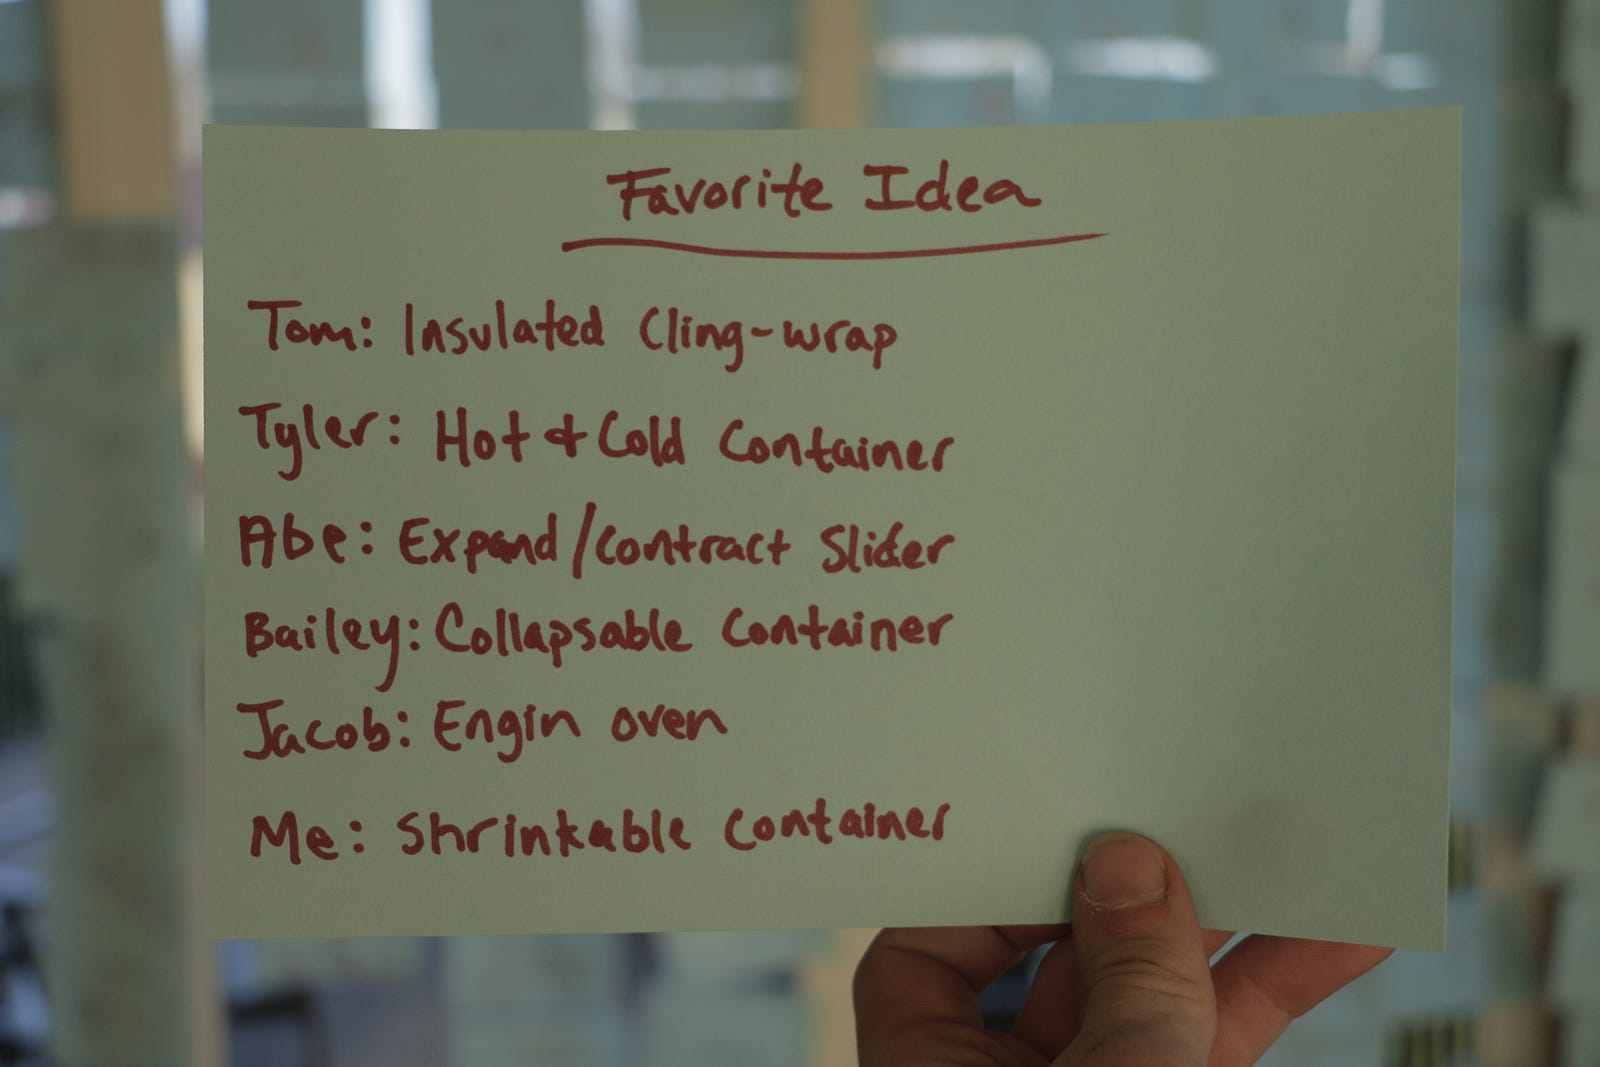 Favorite Idea
Tom: Insulated Cling-wrap
Tyler: Hot & Cold Container
Abe: Expand/contract Slider
Bailey: Collapsable Container
Jacob: Engin oven
Me: Shrinkable Container